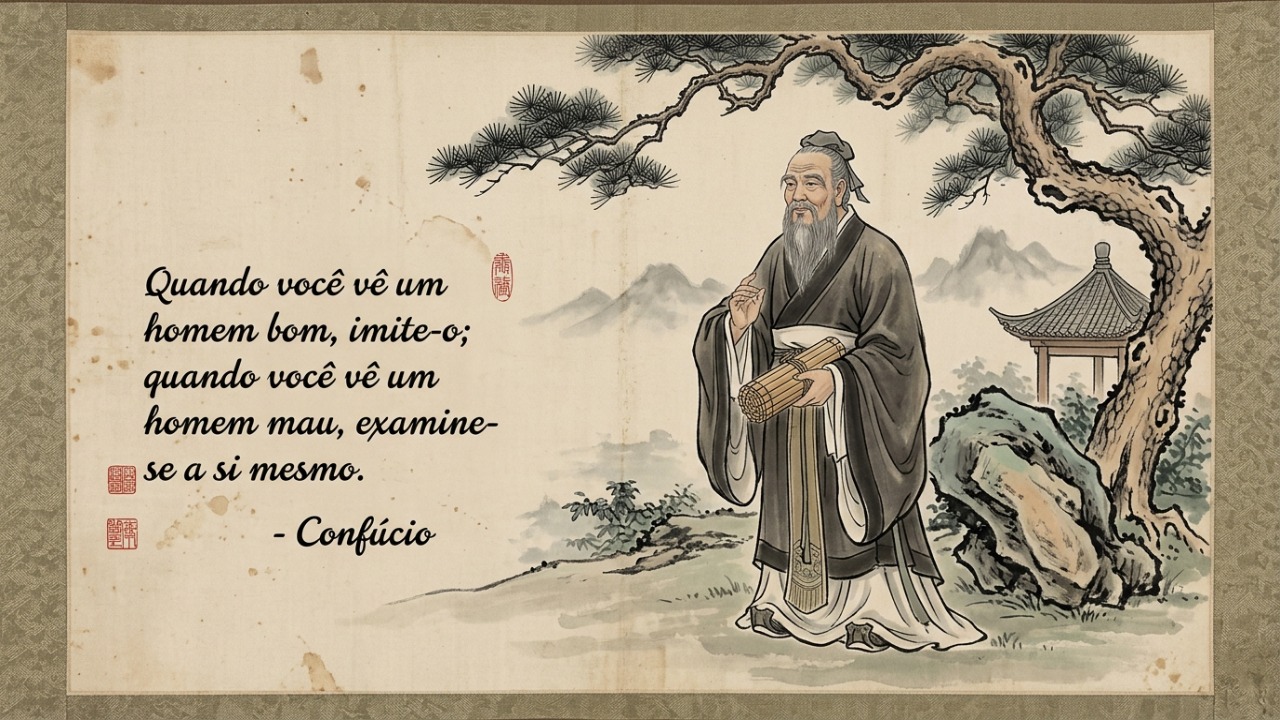 Quando você vê um
homem bom, imite-o;
quando você vê um
homem mau, examine-
se a si mesmo.
- Confúcio